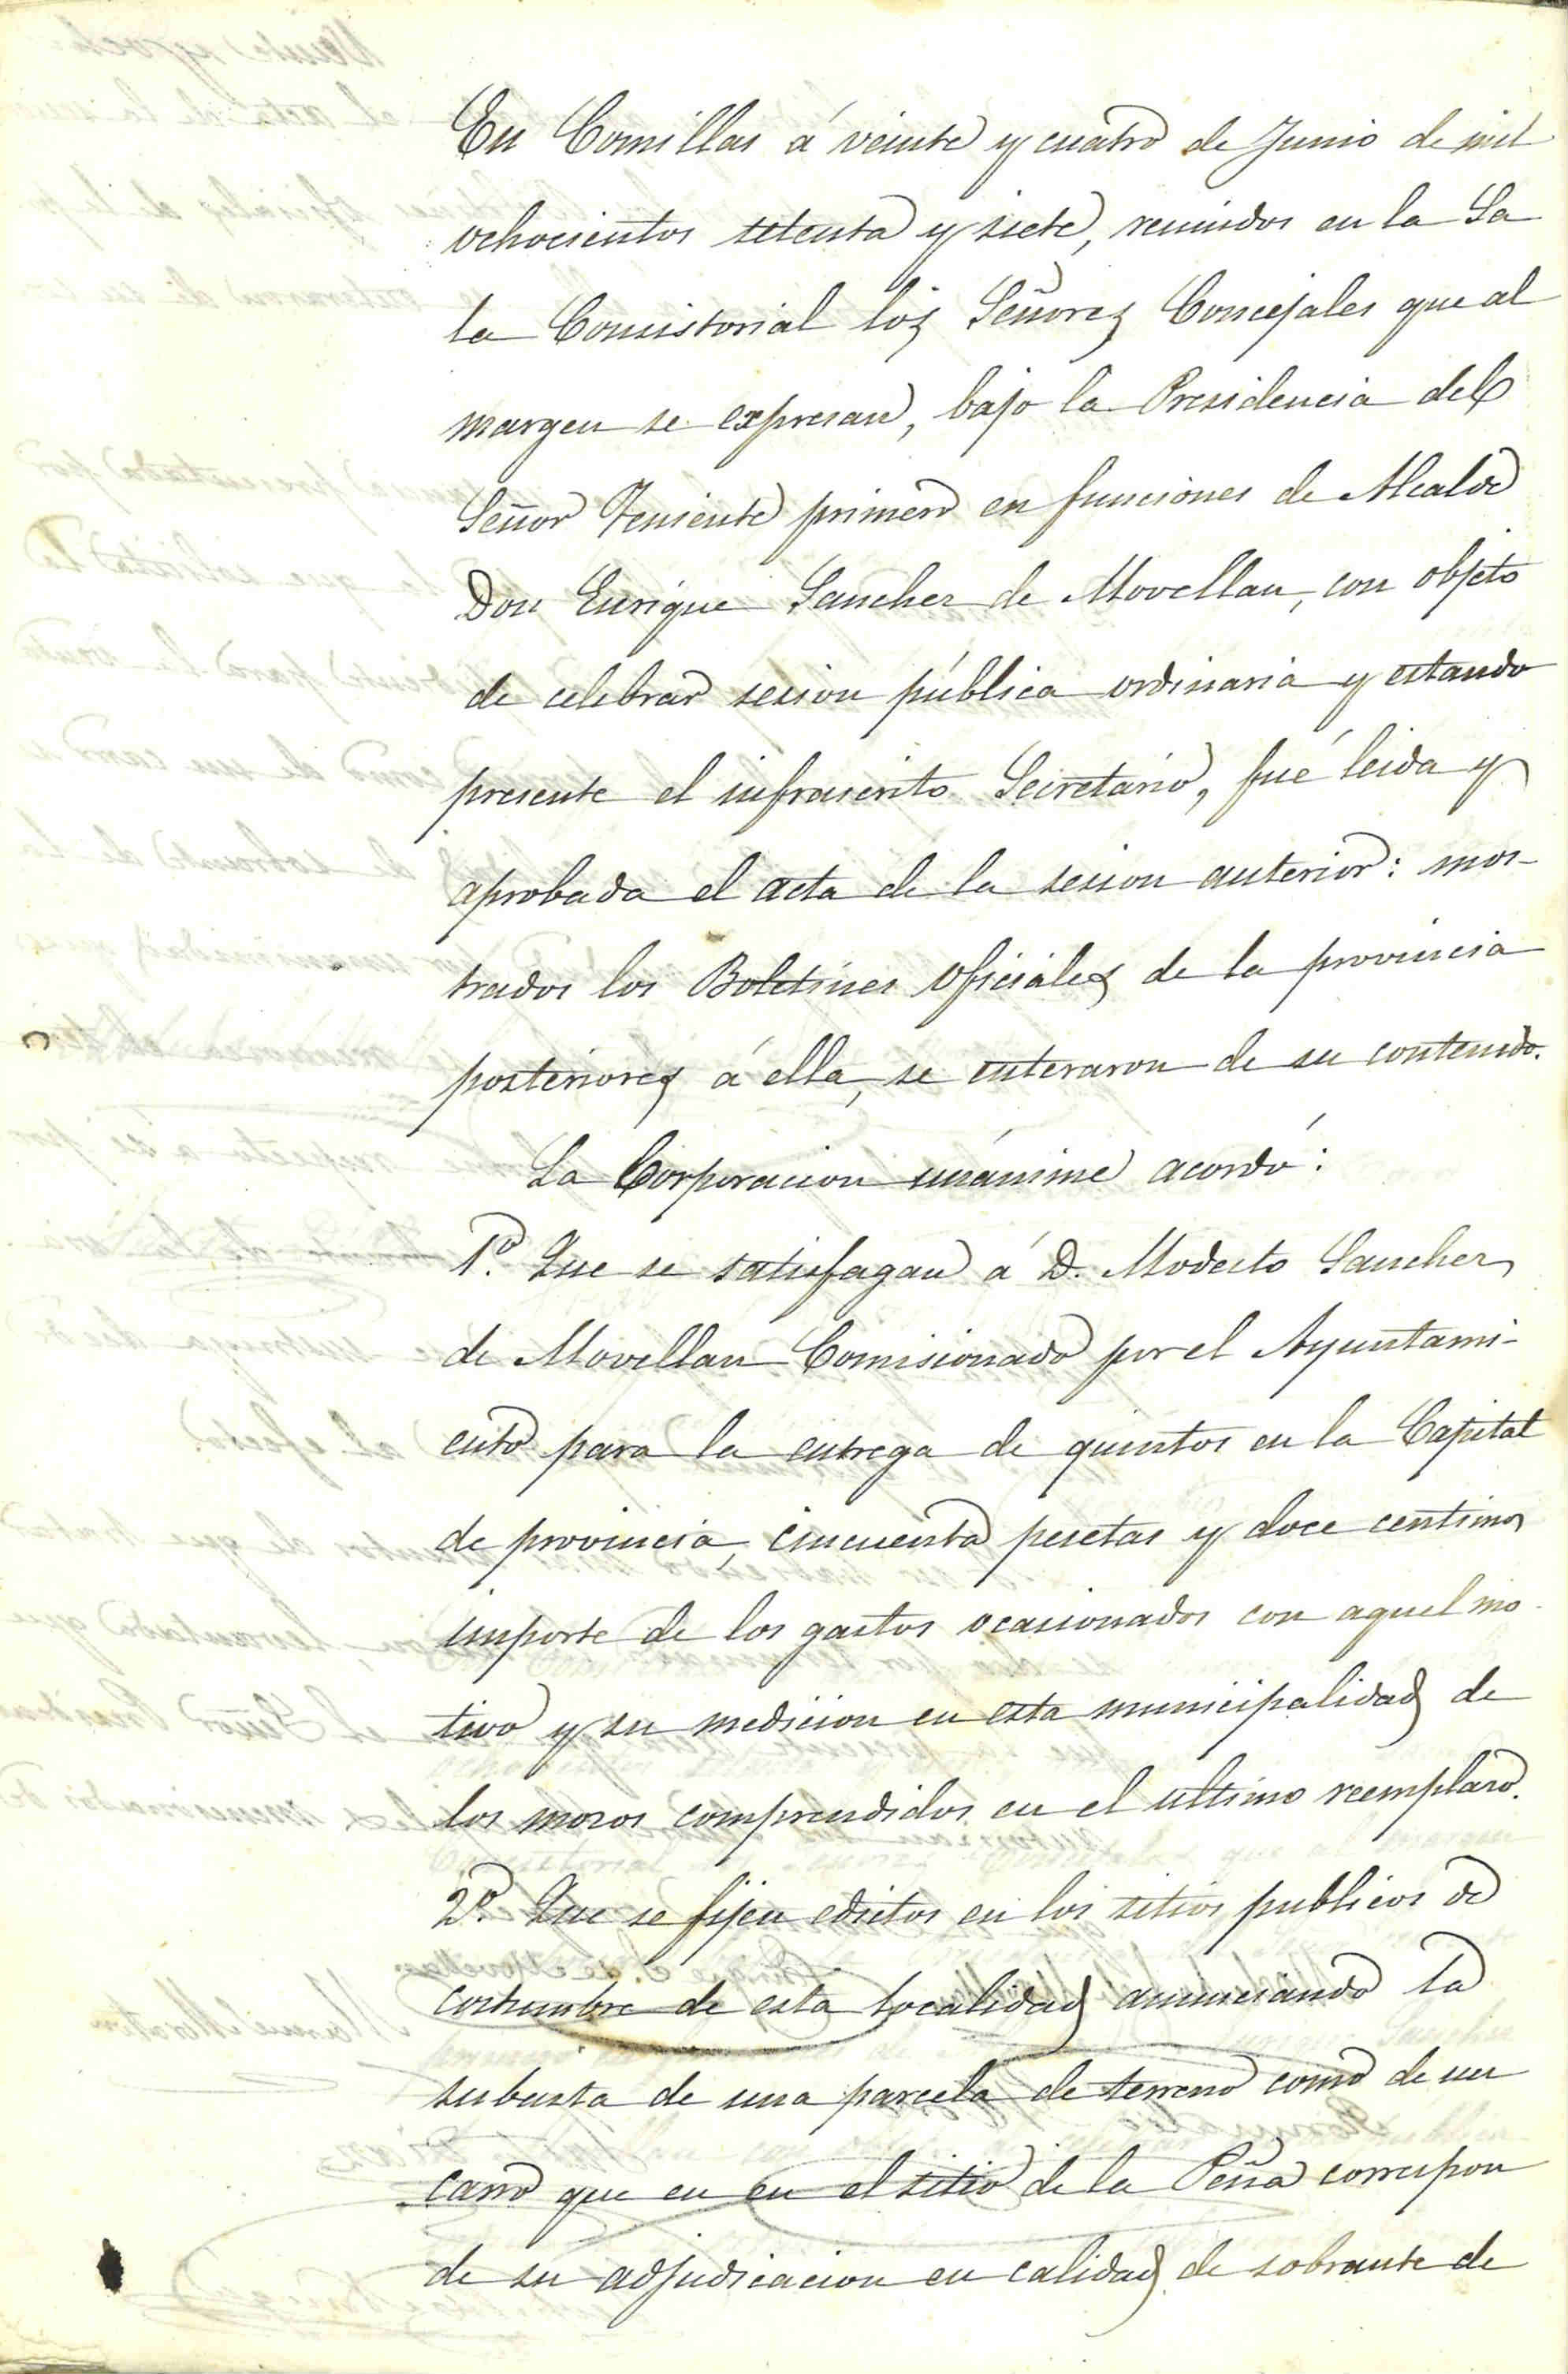 En Comillas á veinte y cuatro de Junio de mil
ochocientos setenta y siete, reunidos en la Sa
la Consistorial los Señores Concejales que al
margen se expresan, bajo la Presidencia del
Señor Teniente primero en funciones de Alcalde
Don Enrique Sanchez de Movellan, con objeto
de celebrar sesion pública ordinaria y estando
presente el infrascrito Secretario, fué leida y
aprobada el acta de la sesion anterior: mos-
trados los Boletines oficiales de la provincia
posteriores á ella, se enteraron de su contenido.
La Corporacion unánime acordó:
1º. Que se satisfagan á D. Modesto Sanchez
de Movellan Comisionado por el Ayuntami-
ento para la entrega de quintos en la Capital
de provincia, cincuenta pesetas y doce centimos
importe de los gastos ocasionados con aquel mo-
tivo y su medicion en esta municipalidad de
los mozos comprendidos en el ultimo reemplazo.
2º. Que se fijen edictos en los sitios publicos de
costumbre de esta localidad anunciando la
subasta de una parcela de terreno como de un
carro que en en el sitio de la Peña correspon
de su adjudicacion en calidad de sobrante de